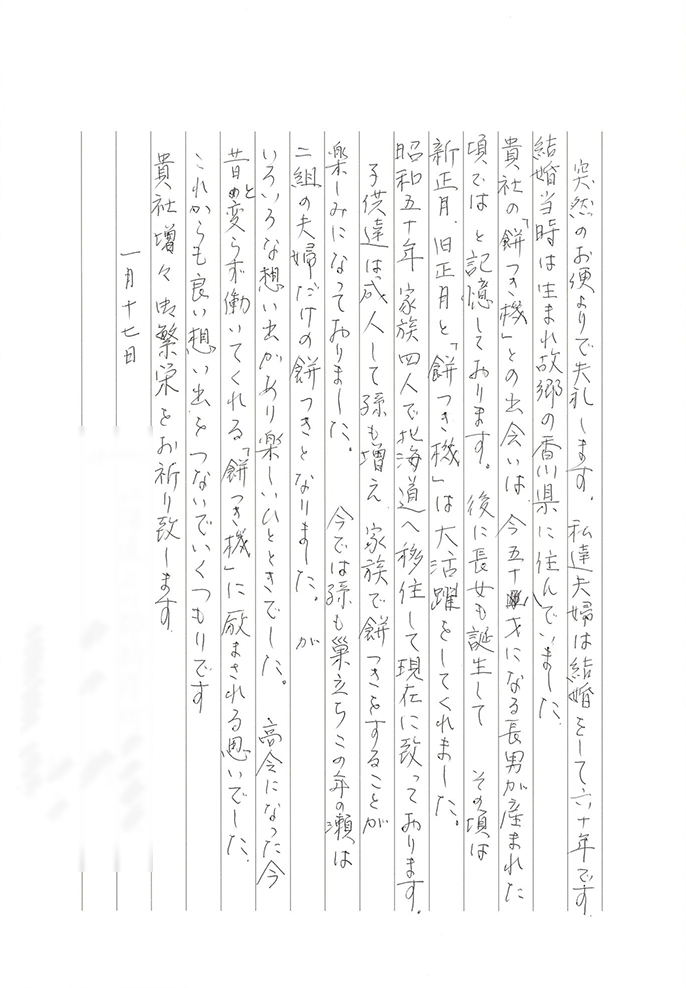 突然のお便よりで失礼します。私達夫婦は結婚をして六十年です
結婚当時は生まれ故郷の香川県に住んでいました
貴社の「餅つき機」との出会いは、今五十才になる長男が産まれた
頃ではと記憶しております。後に長女も誕生して その頃は
新正月、旧正月と「餅つき機」は大活躍をしてくれました。
昭和五十年 家族四人で北海道へ移住して現在に致っております。
子供達は成人して孫も増え 家族で餅つきをすることが
楽しみになっておりました。 今では孫も巣立ちこの年の瀬は
二組の夫婦だけの餅つきとなりました。が
いろいろな想い出があり楽しいひとときでした。 高令になった今
昔と変らず働いてくれる「餅つき機」に励まされる思いでした。
これからも良い想い出をつないでいくつもりです
貴社増々御繁栄をお祈り致します
一月十七日